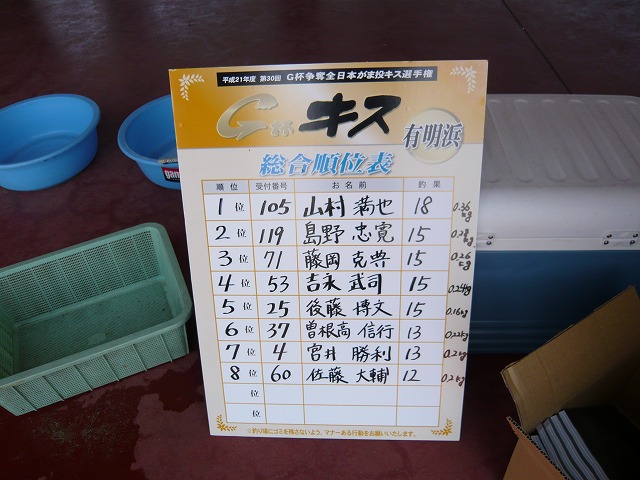 平成21年度 第30回 G杯争奪全日本がま投キス選手権
G杯 キス
有明浜
総合順位表
順位 受付番号 お名前 釣果
1位 105 山村 満也 18 0.36kg
2位 119 島野 忠寛 15 0.28kg
3位 71 藤岡 克典 15 0.26kg
4位 53 吉永 武司 15 0.24kg
5位 25 後藤 博文 15 0.16kg
6位 37 曽根高 信行 13 0.22kg
7位 4 宮井 勝利 13 0.2kg
8位 60 佐藤 大輔 12 0.2kg
位
位
☆釣り場にゴミを残さないよう、マナーある行動をお願いいたします。
gam